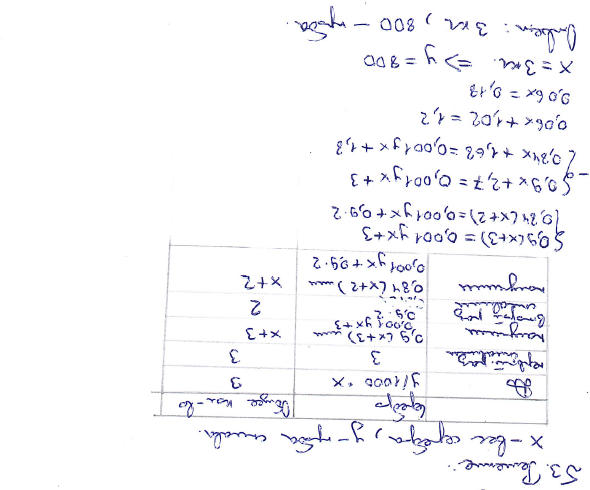 53. Решение:
x – вес серебра, y – проба сплава.
серебро Общее кол-во
y/1000 · x 3
первый раз 3 3
получили 0,9(x+3) или 0,001yx+3 x+3
второй раз 0,9·2 2
получили 0,84(x+2) или 0,001yx+0,9·2 x+2
{0,9(x+3)=0,001yx+3
{0,84(x+2)=0,001yx+0,9·2
{0,9x+2,7=0,001yx+3
{0,84x+1,68=0,001yx+1,8
0,06x+1,02=1,2
0,06x=0,18
x=3кг. => y=800
Ответ: 3 кг, 800 – проба.